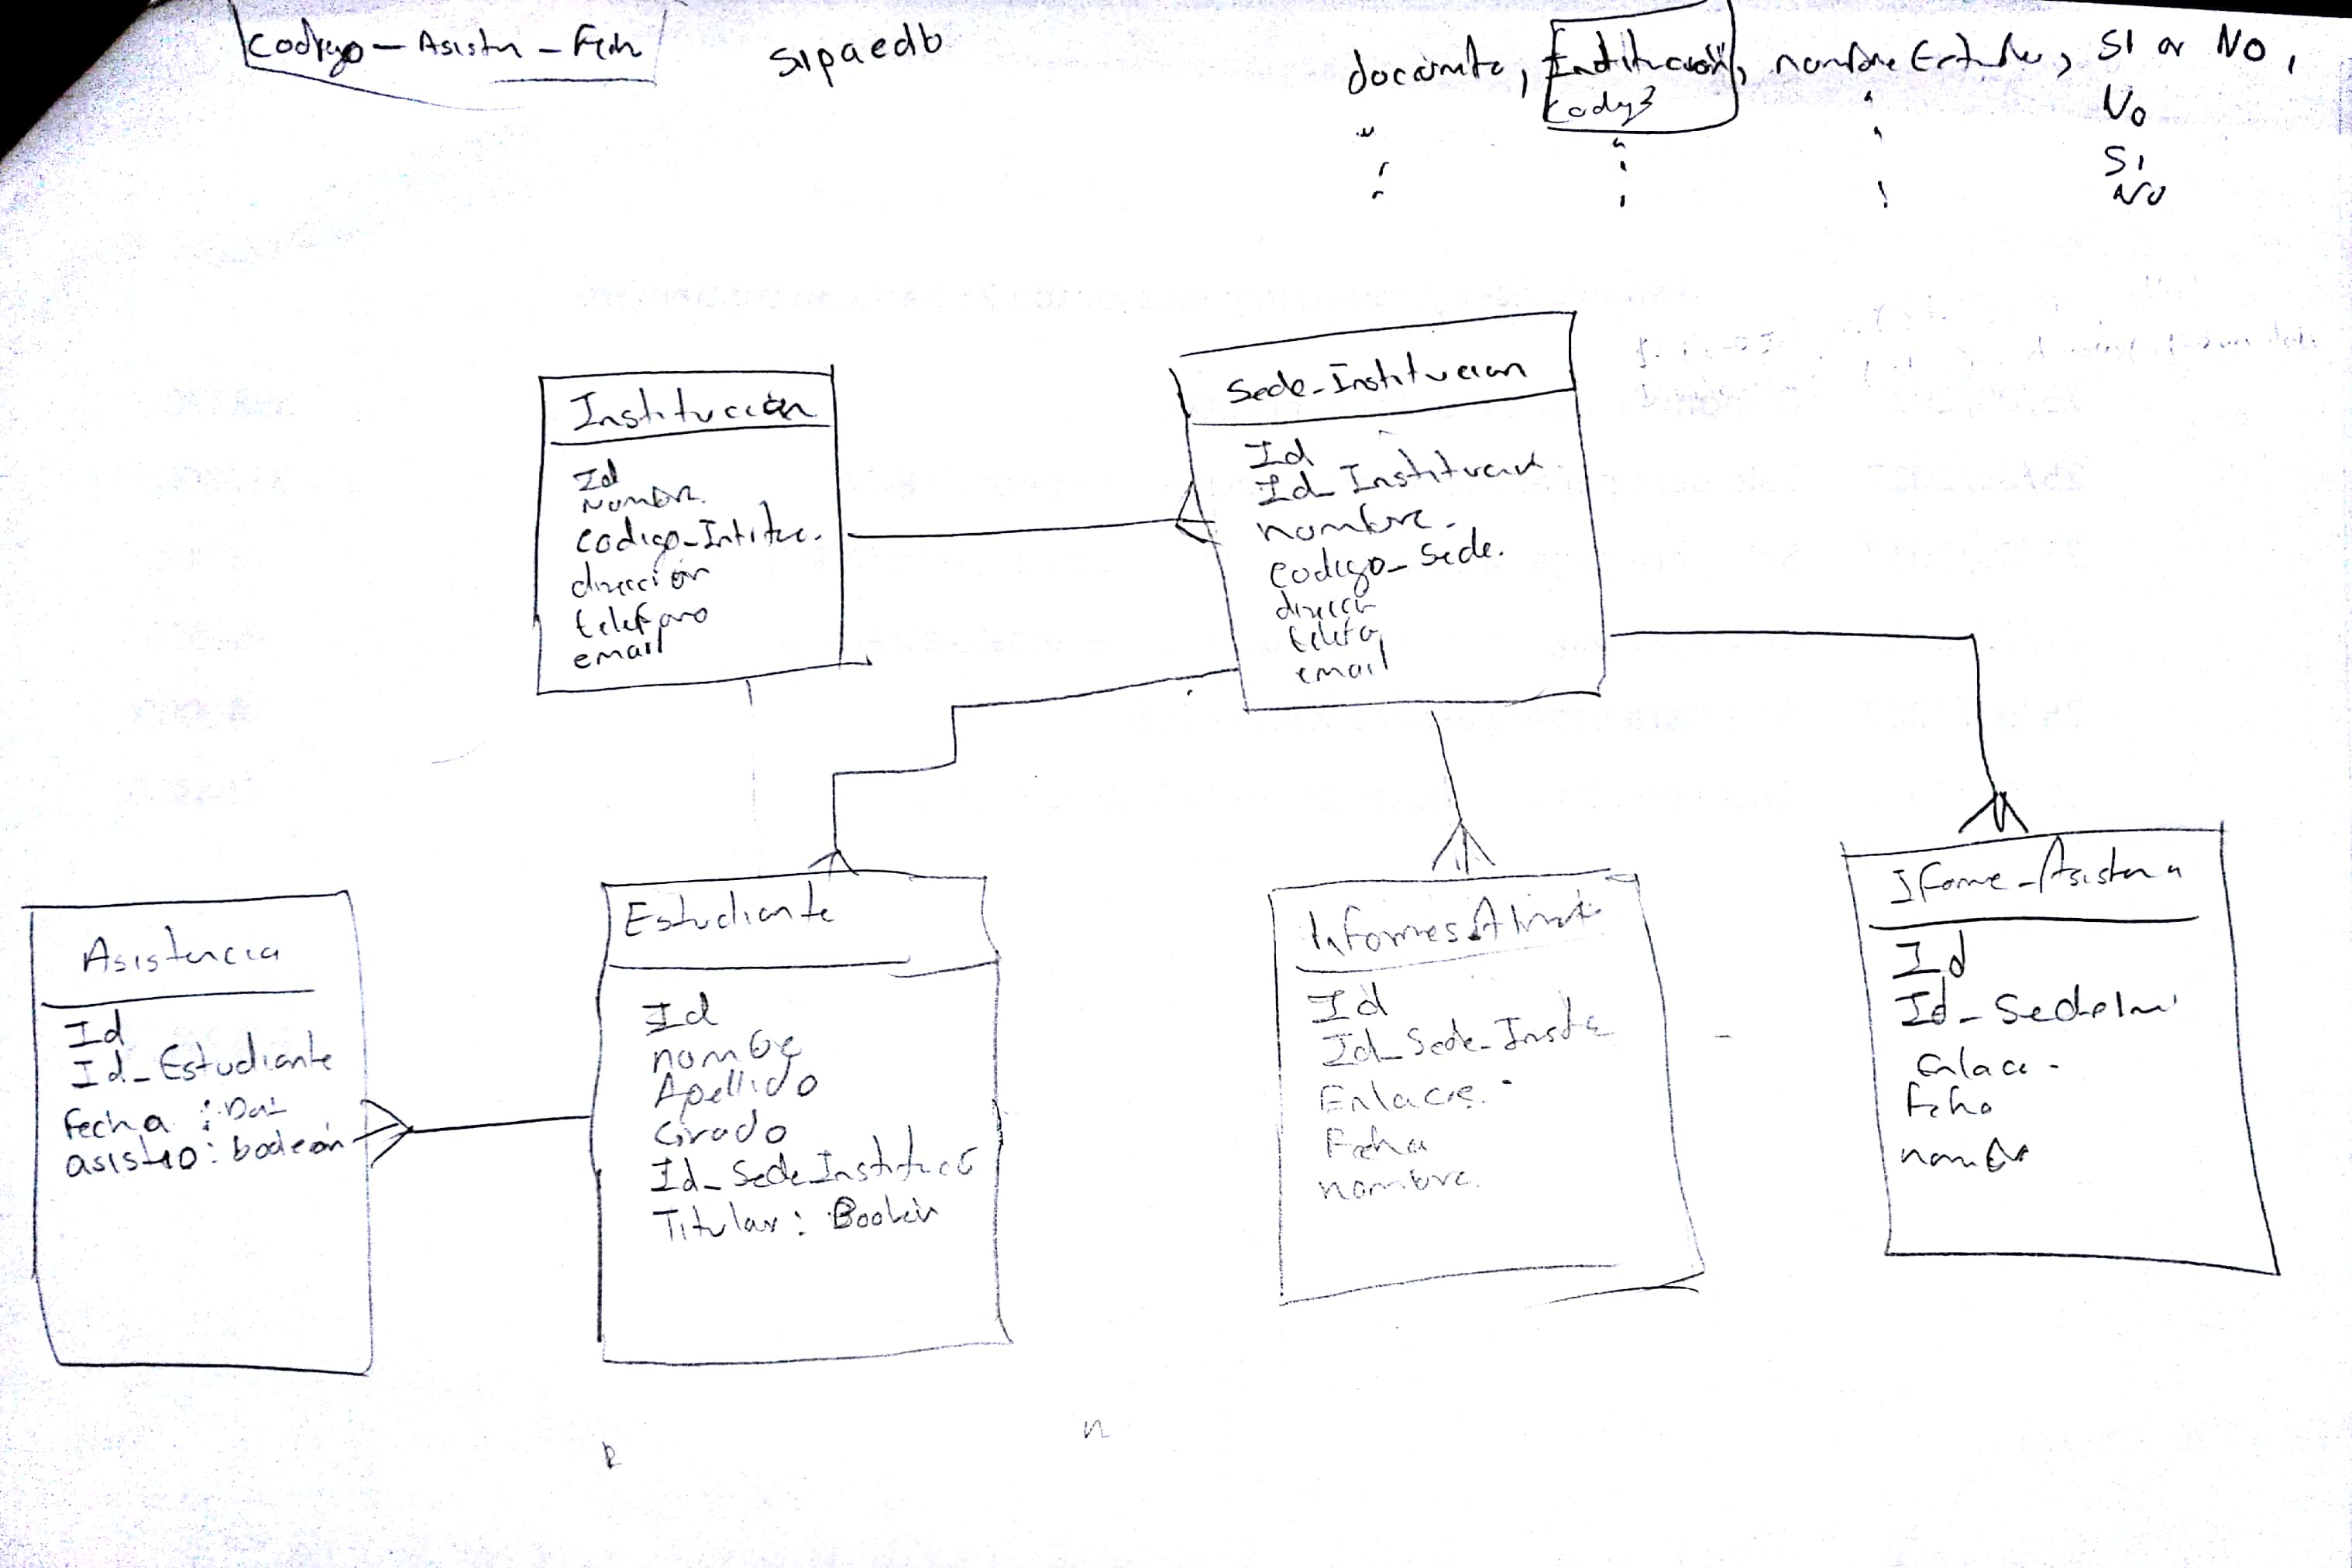 codigo - Asistn - Fech
sipaedb
documto, Institución, nombre Estud, SI or NO,
NO
SI
NO
Institución
Id
Nombre.
codigo_Intituc.
dirección
telefono
email
Sede_Institucion
Id
Id_Institucion.
nombre.
codigo_Sede.
direcc
telefo
email
Asistencia
Id
Id_Estudiante
fecha : Dat
asistio : boolean
Estudiante
Id
nombre
Apellido
Grado
Id_Sede Instituc
Titular : Boolean
Informes Aliment
Id
Id_Sede_Inst
Enlace.
Fecha
nombre.
Iforme_Asistencia
Id
Id_SedeIns
Enlace.
Fecha
nombr
n